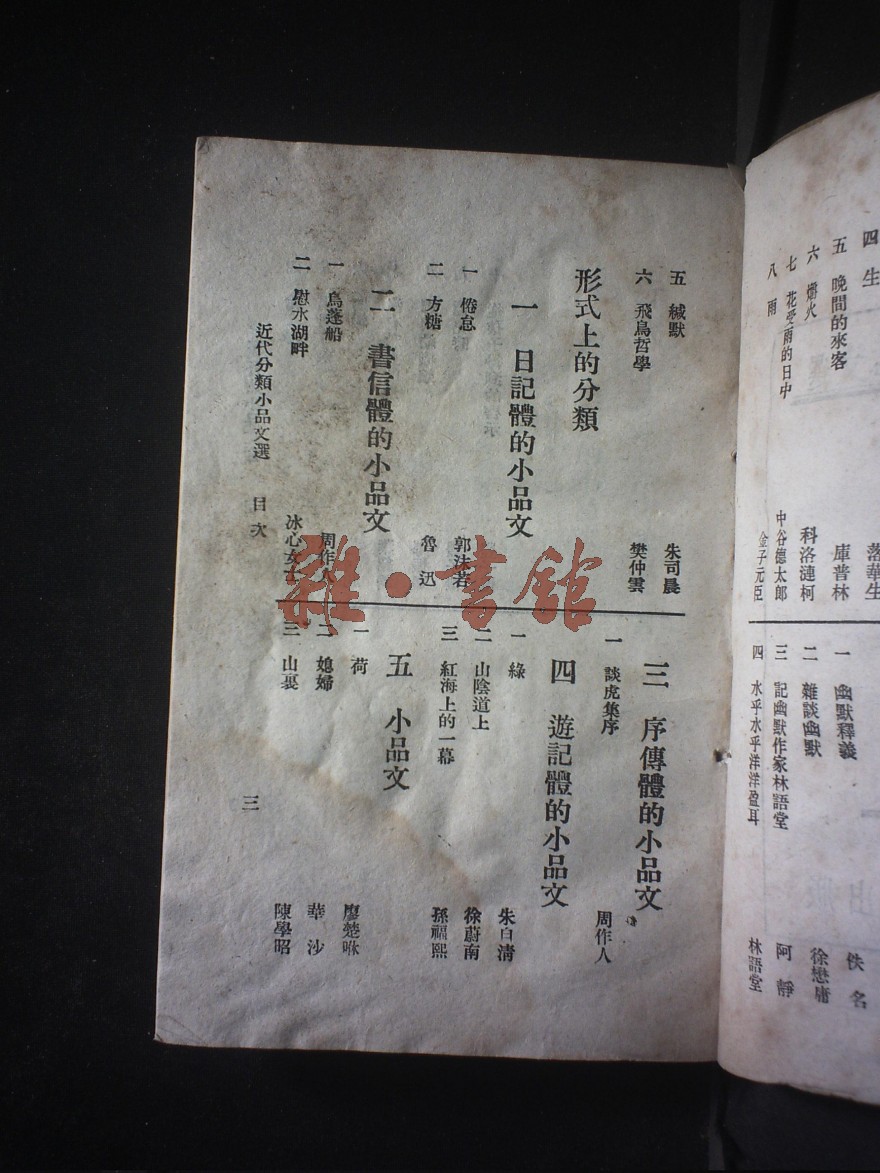 四 生 落華生
五 晚間的來客 庫普林
六 爝火 科洛漣柯
七 花受雨的日中 中谷德太郎
八 雨 金子元臣
一 幽默釋義 佚名
二 雜談幽默 徐懋庸
三 記幽默作家林語堂 阿靜
四 水乎水乎洋洋盈耳 林語堂
五 緘默 朱司晨
六 飛鳥哲學 樊仲雲
形式上的分類
一 日記體的小品文
一 倦怠 郭沫若
二 方糖 魯迅
二 書信體的小品文
一 烏蓬船 周作人
二 慰冰湖畔 冰心女士
三 序傳體的小品文
一 談虎集序 周作人
四 遊記體的小品文
一 綠 朱自清
二 山陰道上 徐蔚南
三 紅海上的一幕 孫福熙
五 小品文
一 荷 廖楚
二 媳婦 華沙
三 山裏 陳學昭
近代分類小品文選 目次
三
雜·書館